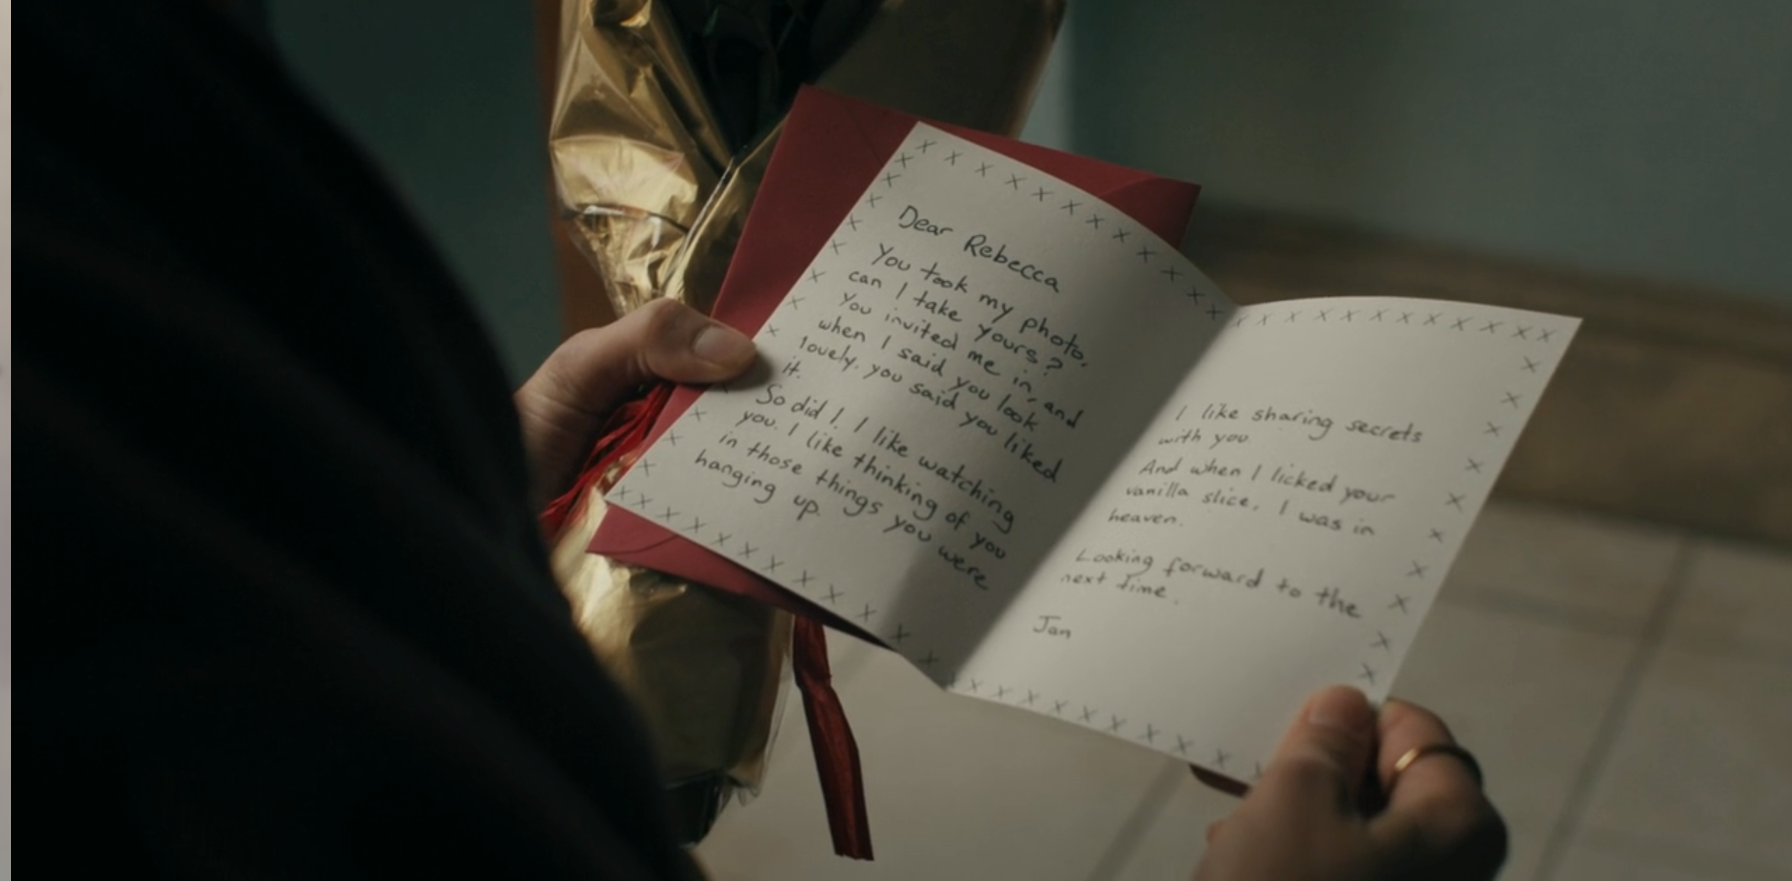 Dear Rebecca
You took my photo,
can I take yours?
You invited me in, and
when I said you look
lovely, you said you liked
it.
So did I. I like watching
you. I like thinking of you
in those things you were
hanging up.
I like sharing secrets
with you
And when I licked your
vanilla slice, I was in
heaven.
Looking forward to the
next time.
Jan